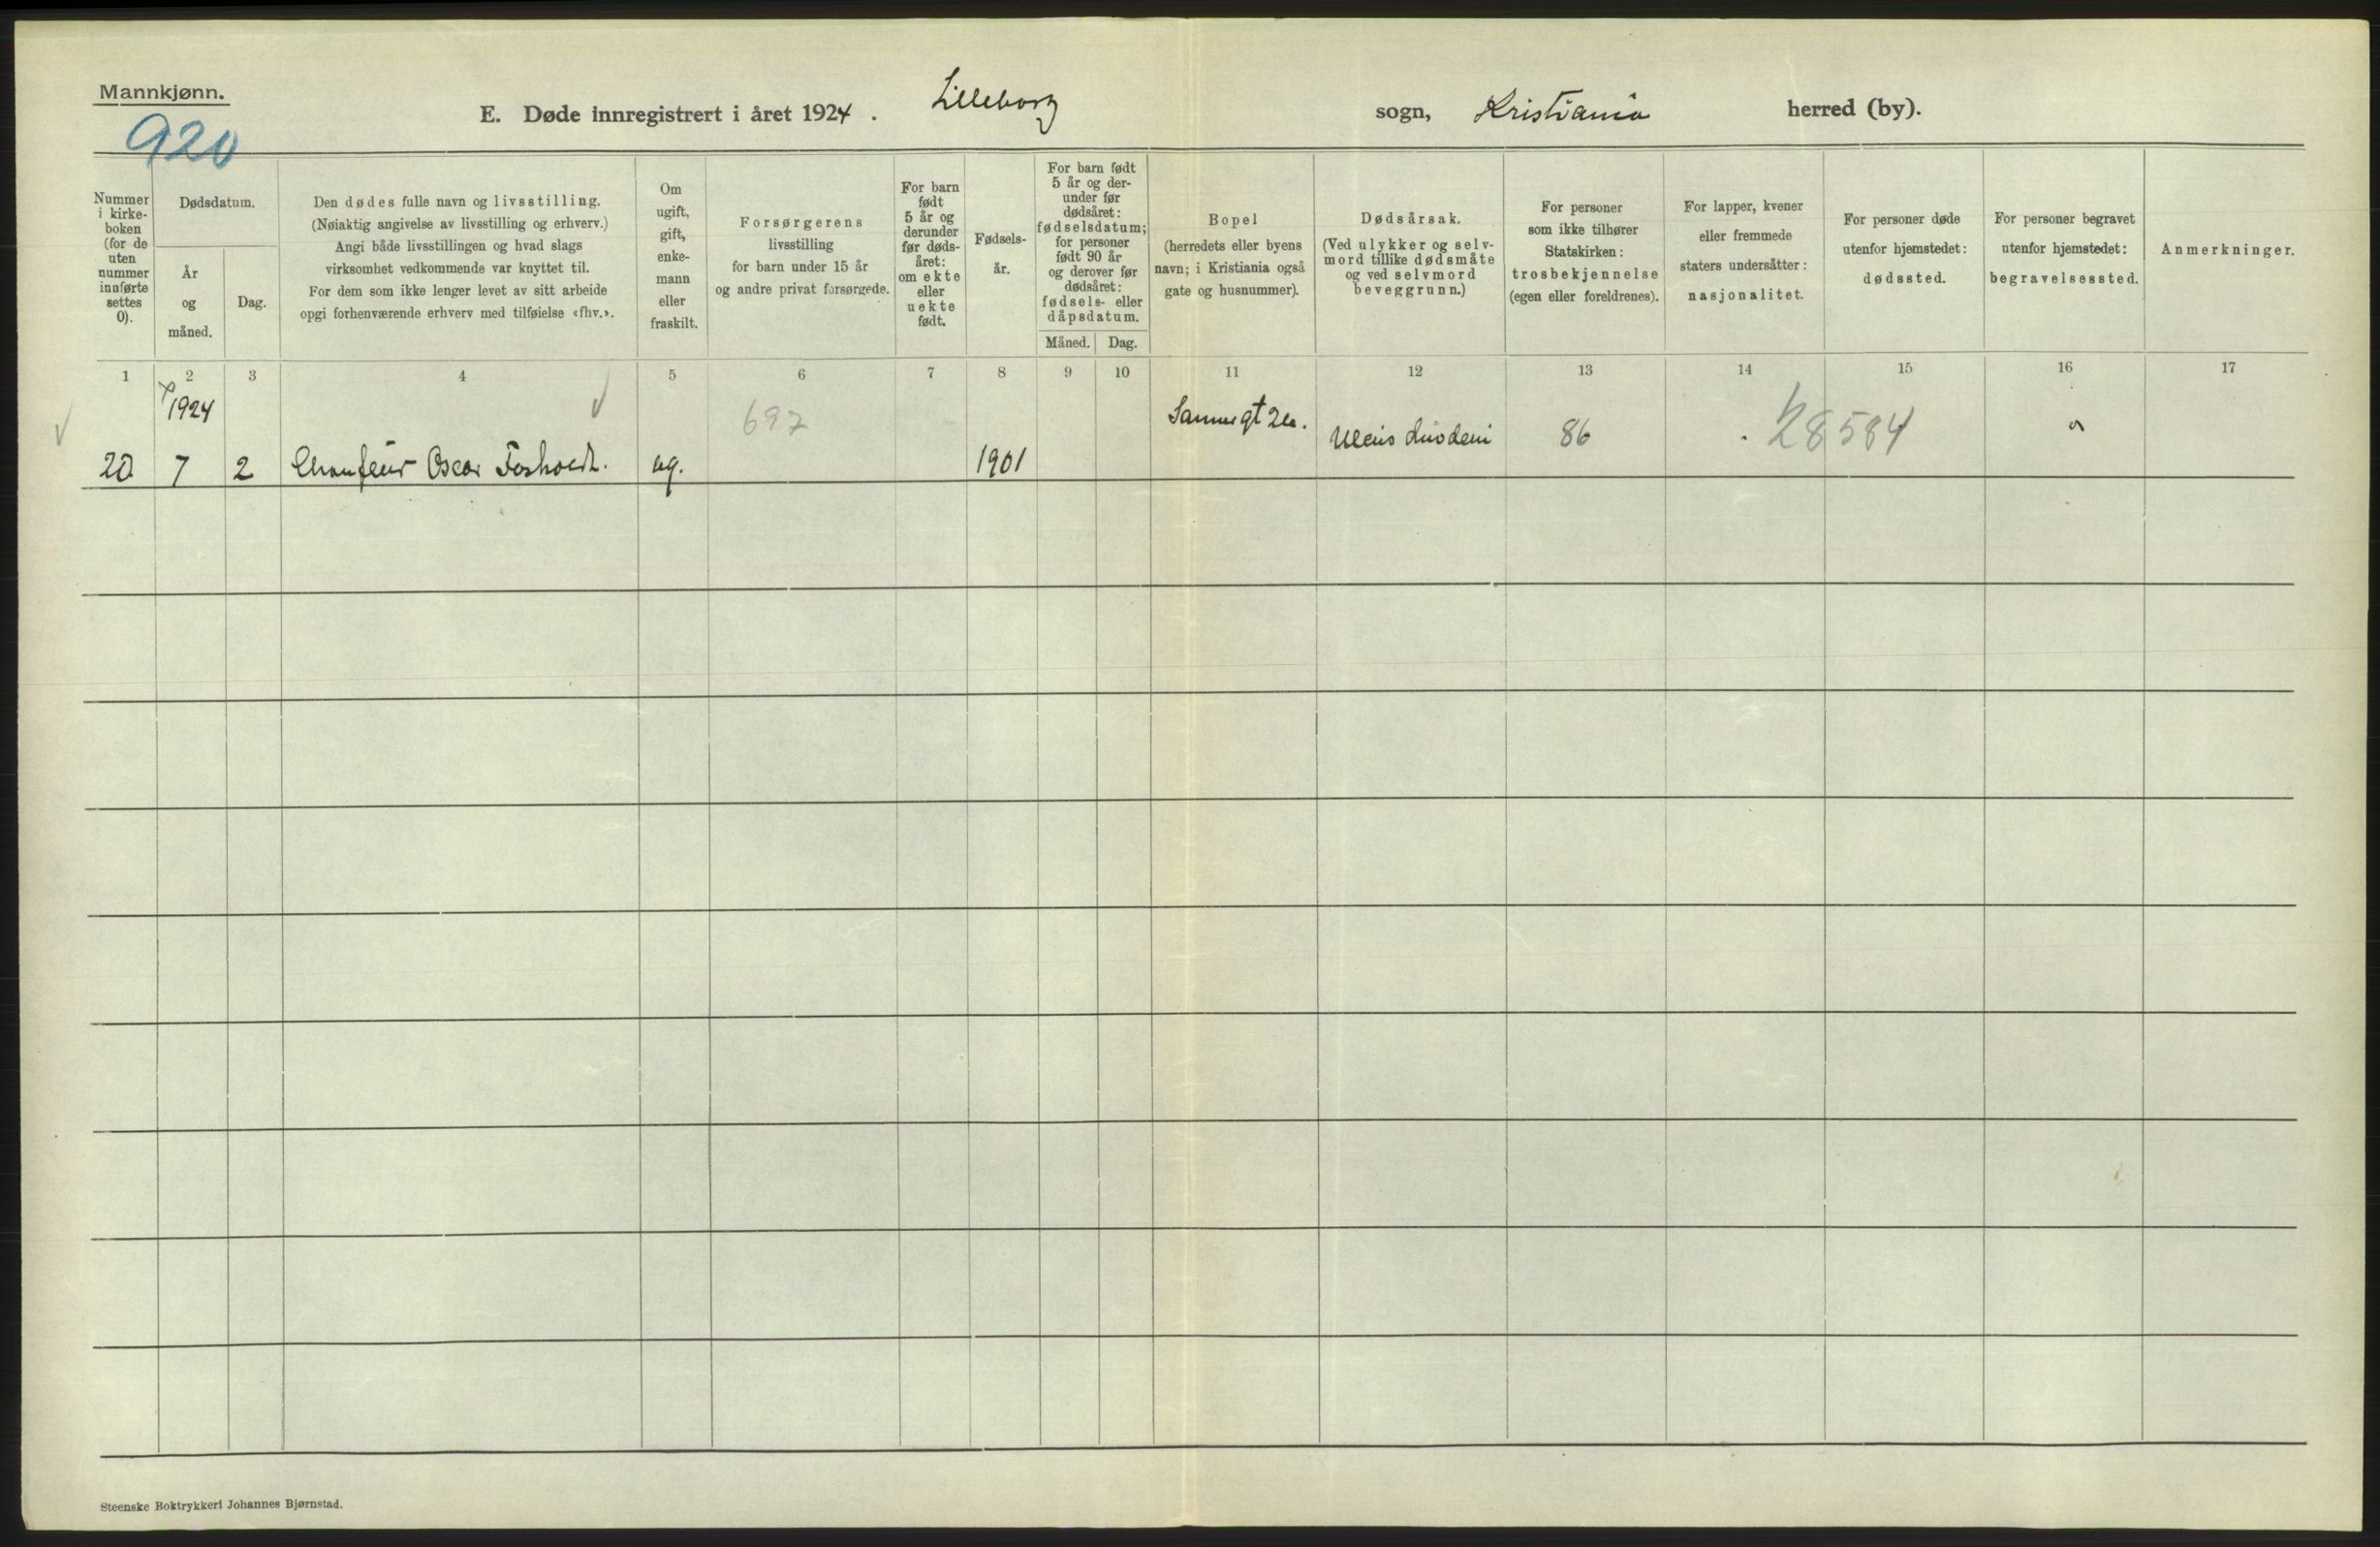 Mannkjønn.
920
E. Døde innregistrert i året 1924. Lilleborg sogn, Kristiania herred (by).
Nummer
i kirke-
boken
(for de
uten
nummer
innførte
settes
0).
Dødsdatum.
År
og
måned.
Dag.
Den dødes fulle navn og livsstilling.
(Nøiaktig angivelse av livsstilling og erhverv.)
Angi både livsstillingen og hvad slags
virksomhet vedkommende var knyttet til.
For dem som ikke lenger levet av sitt arbeide
opgi forhenværende erhverv med tilføielse «fhv.».
Om
ugift,
gift,
enke-
mann
eller
fraskilt.
Forsørgerens
livsstilling
for barn under 15 år
og andre privat forsørgede.
For barn
født
5 år og
derunder
før døds-
året:
om ekte
eller
uekte
født.
Fødsels-
år.
For barn født
5 år og der-
under før
dødsåret:
fødselsdatum;
for personer
født 90 år
og derover før
dødsåret:
fødsels- eller
dåpsdatum.
Måned. Dag.
Bopel
(herredets eller byens
navn; i Kristiania også
gate og husnummer).
Dødsårsak.
(Ved ulykker og selv-
mord tillike dødsmåte
og ved selvmord
beveggrunn.)
For personer
som ikke tilhører
Statskirken:
trosbekjennelse
(egen eller foreldrenes).
For lapper, kvener
eller fremmede
staters undersåtter:
nasjonalitet.
For personer døde
utenfor hjemstedet:
dødssted.
For personer begravet
utenfor hjemstedet:
begravelsessted.
Anmerkninger.
1 2 3 4 5 6 7 8 9 10 11 12 13 14 15 16 17
1924 697 Sannergt 28584
20 7 2 Chaufeur Oscar ug. 1901 Ulcus duodeni 86
Steenske Boktrykkeri Johannes Bjørnstad.